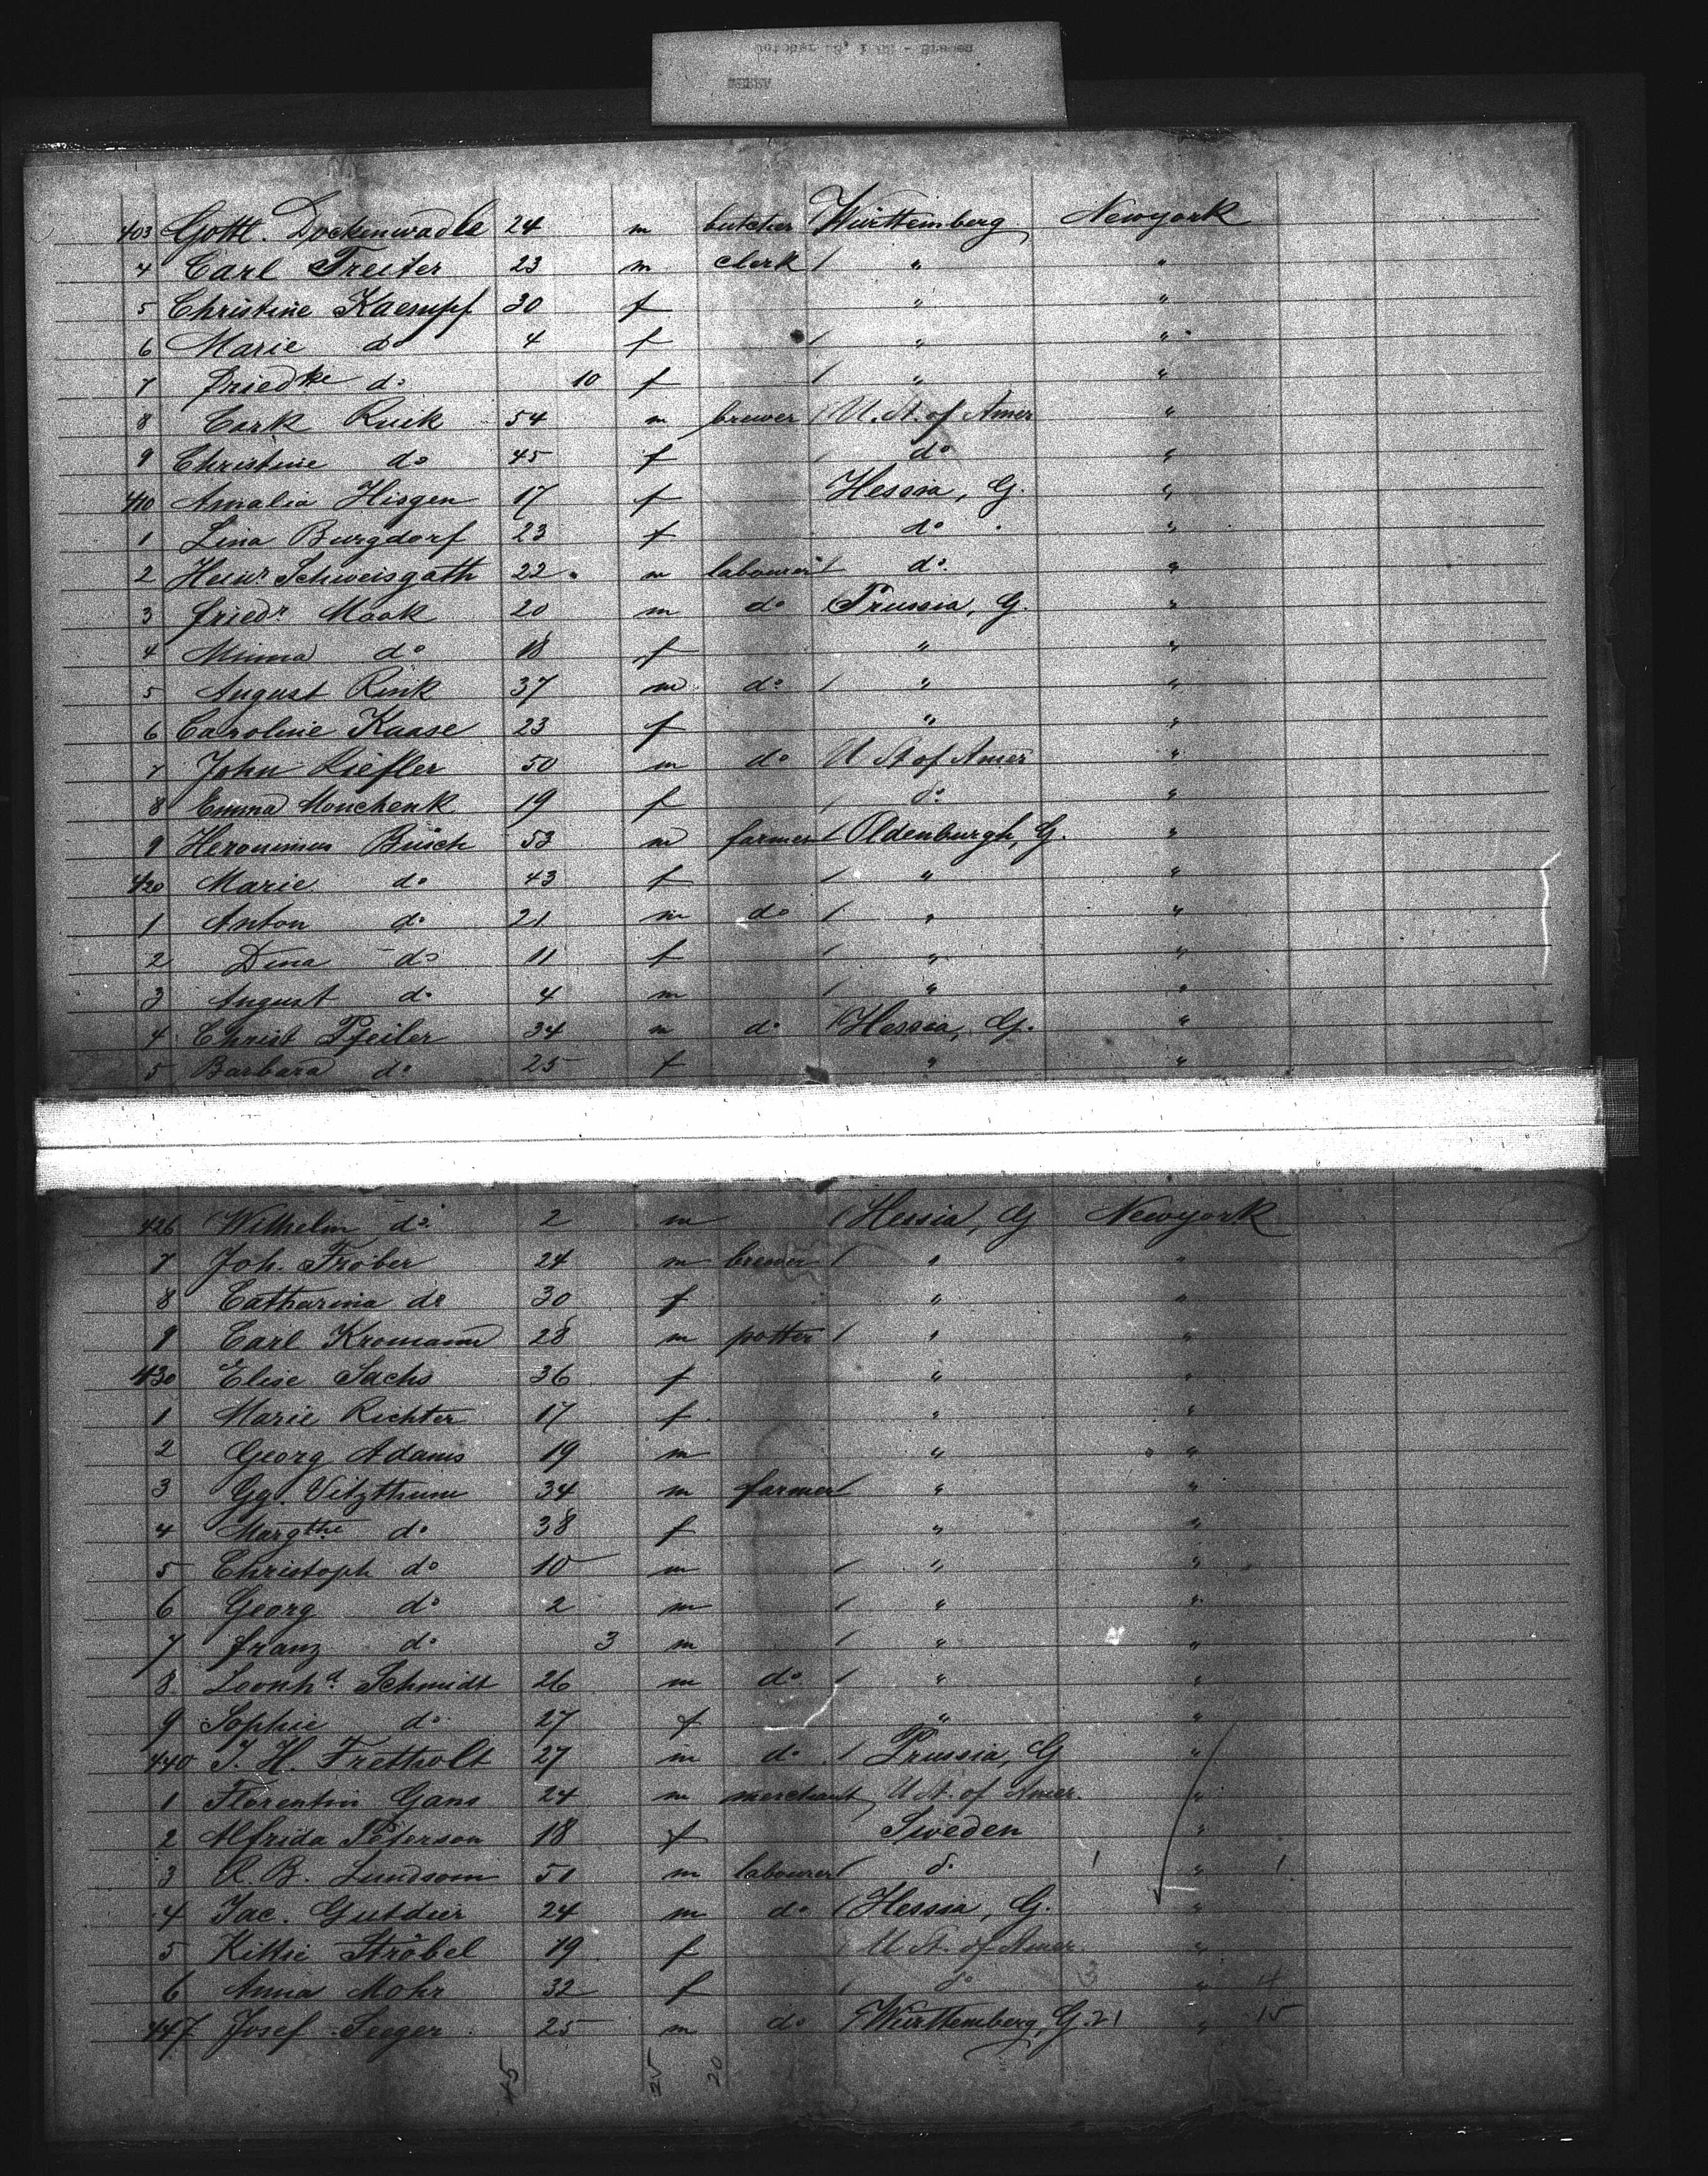 403 Gottl. Dockenwadle 24 m butcher Württemberg Newyork
4 Carl Treiter 23 m clerk / " "
5 Christine Kaempf 30 f " "
6 Marie do 4 f / " "
7 Friedke do 10 f / " "
8 Cark Ruck 54 m brewer / U. St. of Amer "
9 Christine do 45 f / do "
410 Amalia Hisgen 17 f Hessia, G. "
1 Lina Burgdorf 23 f do "
2 Heinr Schweisgath 22 m labourer / do "
3 Friedr Maak 20 m do / Prussia, G. "
4 Minna do 18 f " "
5 August Rink 37 m do / " "
6 Caroline Kaase 23 f " "
7 John Kiefler 50 m do U St of Amer "
8 Emma Mouchenk 19 f / do "
9 Heronimus Büsch 53 m farmer / Oldenburgh, G. "
420 Marie do 43 f / " "
1 Anton do 21 m do / " "
2 Dina do 11 f / " "
3 August do 4 m / " "
4 Christ Pfeiler 34 m do / Hessia, G. "
5 Barbara do 25 f " "
426 Wilhelm do 2 m / Hessia, G Newyork
7 Joh. Fröber 24 m brewer / " "
8 Catharina do 30 f " "
9 Carl Kromann 28 m potter / " "
430 Elise Sachs 36 f " "
1 Marie Richter 17 f " "
2 Georg Adams 19 m " "
3 Gg. Vitzthum 34 m farmer / " "
4 Margthe do 38 f " "
5 Christoph do 10 m / " "
6 Georg do 2 m / " "
7 Franz do 3 m / " "
8 Leonhd Schmidt 26 m do / " "
9 Sophie do 27 f " "
440 J. H. Fretholt 27 m do / Prussia, G "
1 Florentin Gans 24 m merchant U St. of Amer. "
2 Alfrida Peterson 18 f Sweden "
3 R. B. Lundsom 51 m labourer / do 1 " 1
4 Jac. Gutdier 24 m do / Hessia, G. "
5 Kittie Ströbel 19 f / U St. of Amer. "
6 Anna Mohr 32 f / do 3 " 4
447 Josef Seeger 25 m do / Württemberg, G. 21 " 15
45 25 20